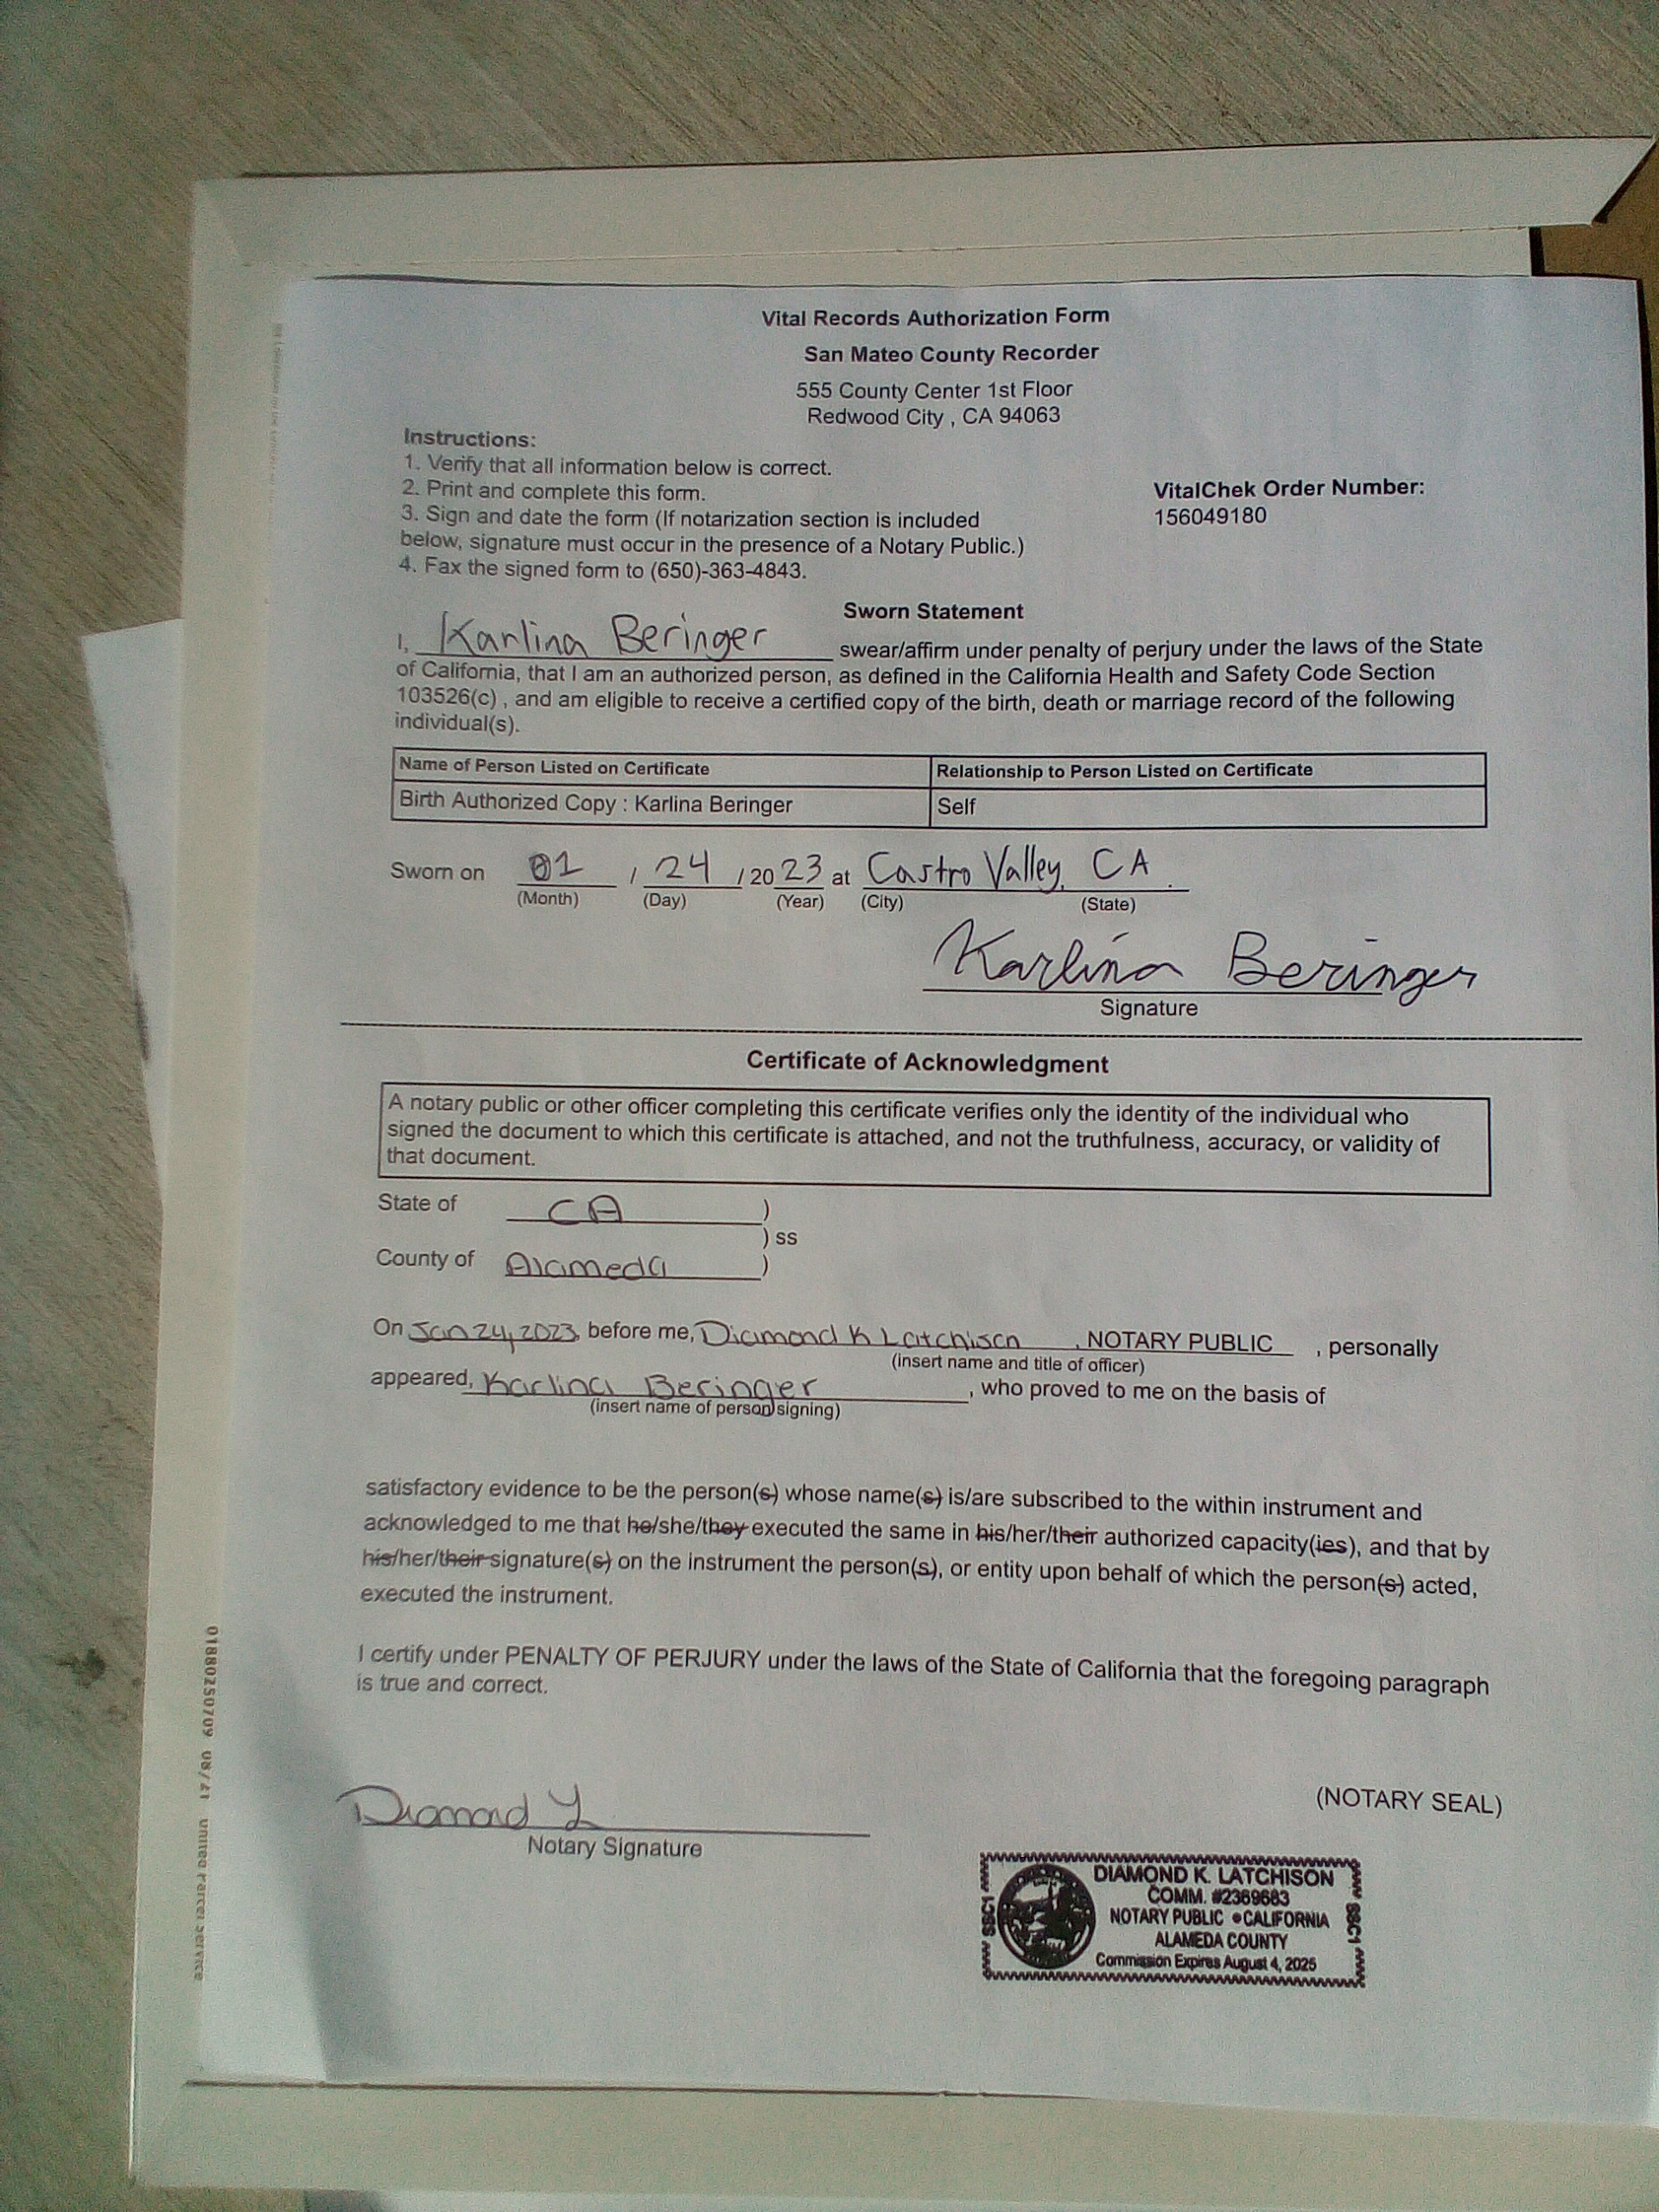 Vital Records Authorization Form
San Mateo County Recorder
555 County Center 1st Floor
Redwood City , CA 94063
Instructions:
1. Verify that all information below is correct.
2. Print and complete this form.
3. Sign and date the form (If notarization section is included
below, signature must occur in the presence of a Notary Public.)
4. Fax the signed form to (650)-363-4843.
VitalChek Order Number:
156049180
Sworn Statement
I, Karlina Beringer swear/affirm under penalty of perjury under the laws of the State
of California, that I am an authorized person, as defined in the California Health and Safety Code Section
103526(c) , and am eligible to receive a certified copy of the birth, death or marriage record of the following
individual(s).
Name of Person Listed on Certificate Relationship to Person Listed on Certificate
Birth Authorized Copy : Karlina Beringer Self
Sworn on 01 / 24 / 2023 at Castro Valley, CA
(Month) (Day) (Year) (City) (State)
Karlina Beringer
Signature
Certificate of Acknowledgment
A notary public or other officer completing this certificate verifies only the identity of the individual who
signed the document to which this certificate is attached, and not the truthfulness, accuracy, or validity of
that document.
State of CA )
) ss
County of Alameda )
On Jan 24, 2023, before me, Diamond K Latchison , NOTARY PUBLIC , personally
(insert name and title of officer)
appeared, Karlina Beringer , who proved to me on the basis of
(insert name of person signing)
satisfactory evidence to be the person(s) whose name(s) is/are subscribed to the within instrument and
acknowledged to me that he/she/they executed the same in his/her/their authorized capacity(ies), and that by
his/her/their signature(s) on the instrument the person(s), or entity upon behalf of which the person(s) acted,
executed the instrument.
I certify under PENALTY OF PERJURY under the laws of the State of California that the foregoing paragraph
is true and correct.
Diamond L
Notary Signature
(NOTARY SEAL)
SSC1
DIAMOND K. LATCHISON
COMM. #2369683
NOTARY PUBLIC • CALIFORNIA
ALAMEDA COUNTY
Commission Expires August 4, 2025
SSC1
01880250709 United Parcel Service